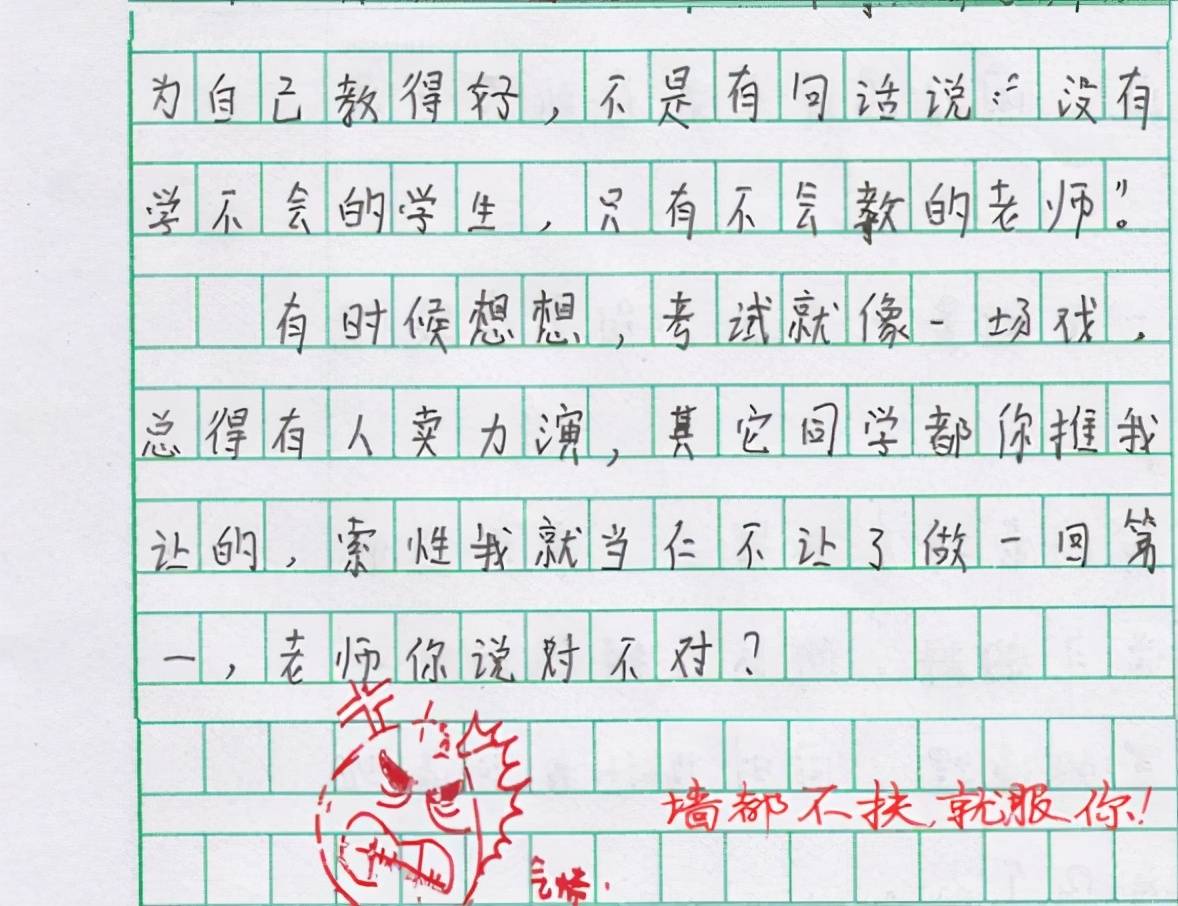 为自己教得好，不是有句话说：“没有
学不会的学生，只有不会教的老师”。
有时候想想，考试就像一场戏，
总得有人卖力演，其它同学都你推我
让的，索性我就当仁不让了做一回第
一，老师你说对不对？
墙都不扶，就服你！
气炸.